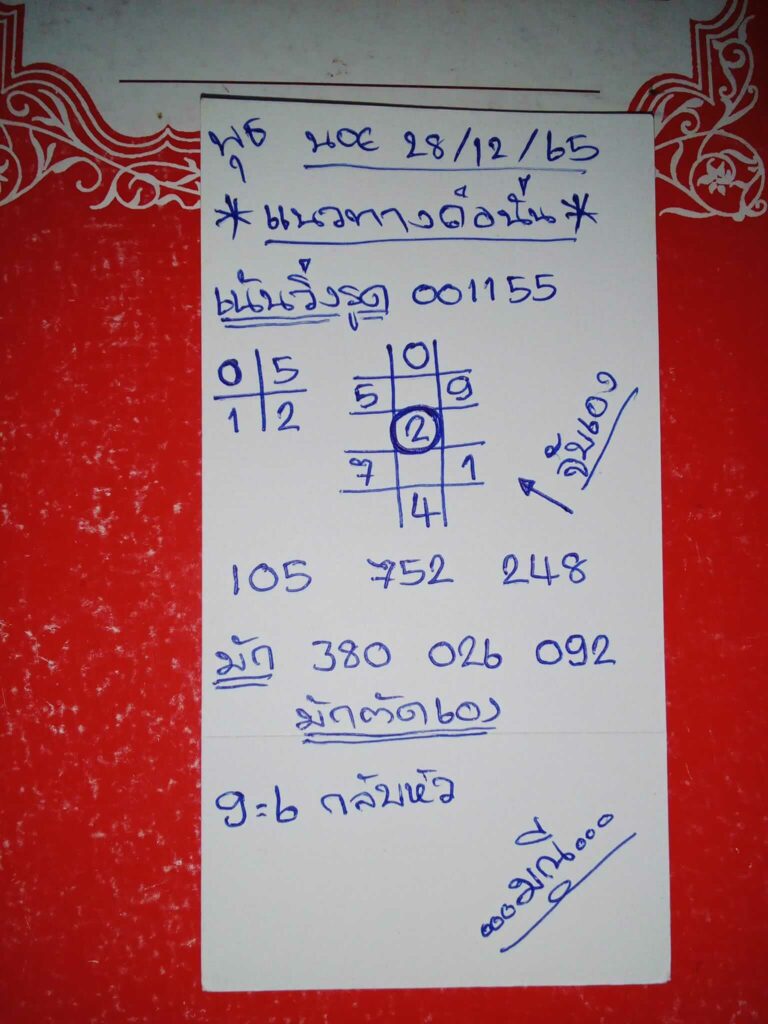 พุธ นอย 28/12/65
*แนวทางดือนี้น*
เน้นวิ่งรูด 001155
0 5
1 2
0
5 9
2
7 1
4
จับเอง
105 752 248
มัก 380 026 092
มักตัดเอง
9=6 กลับหัว
...มณี...